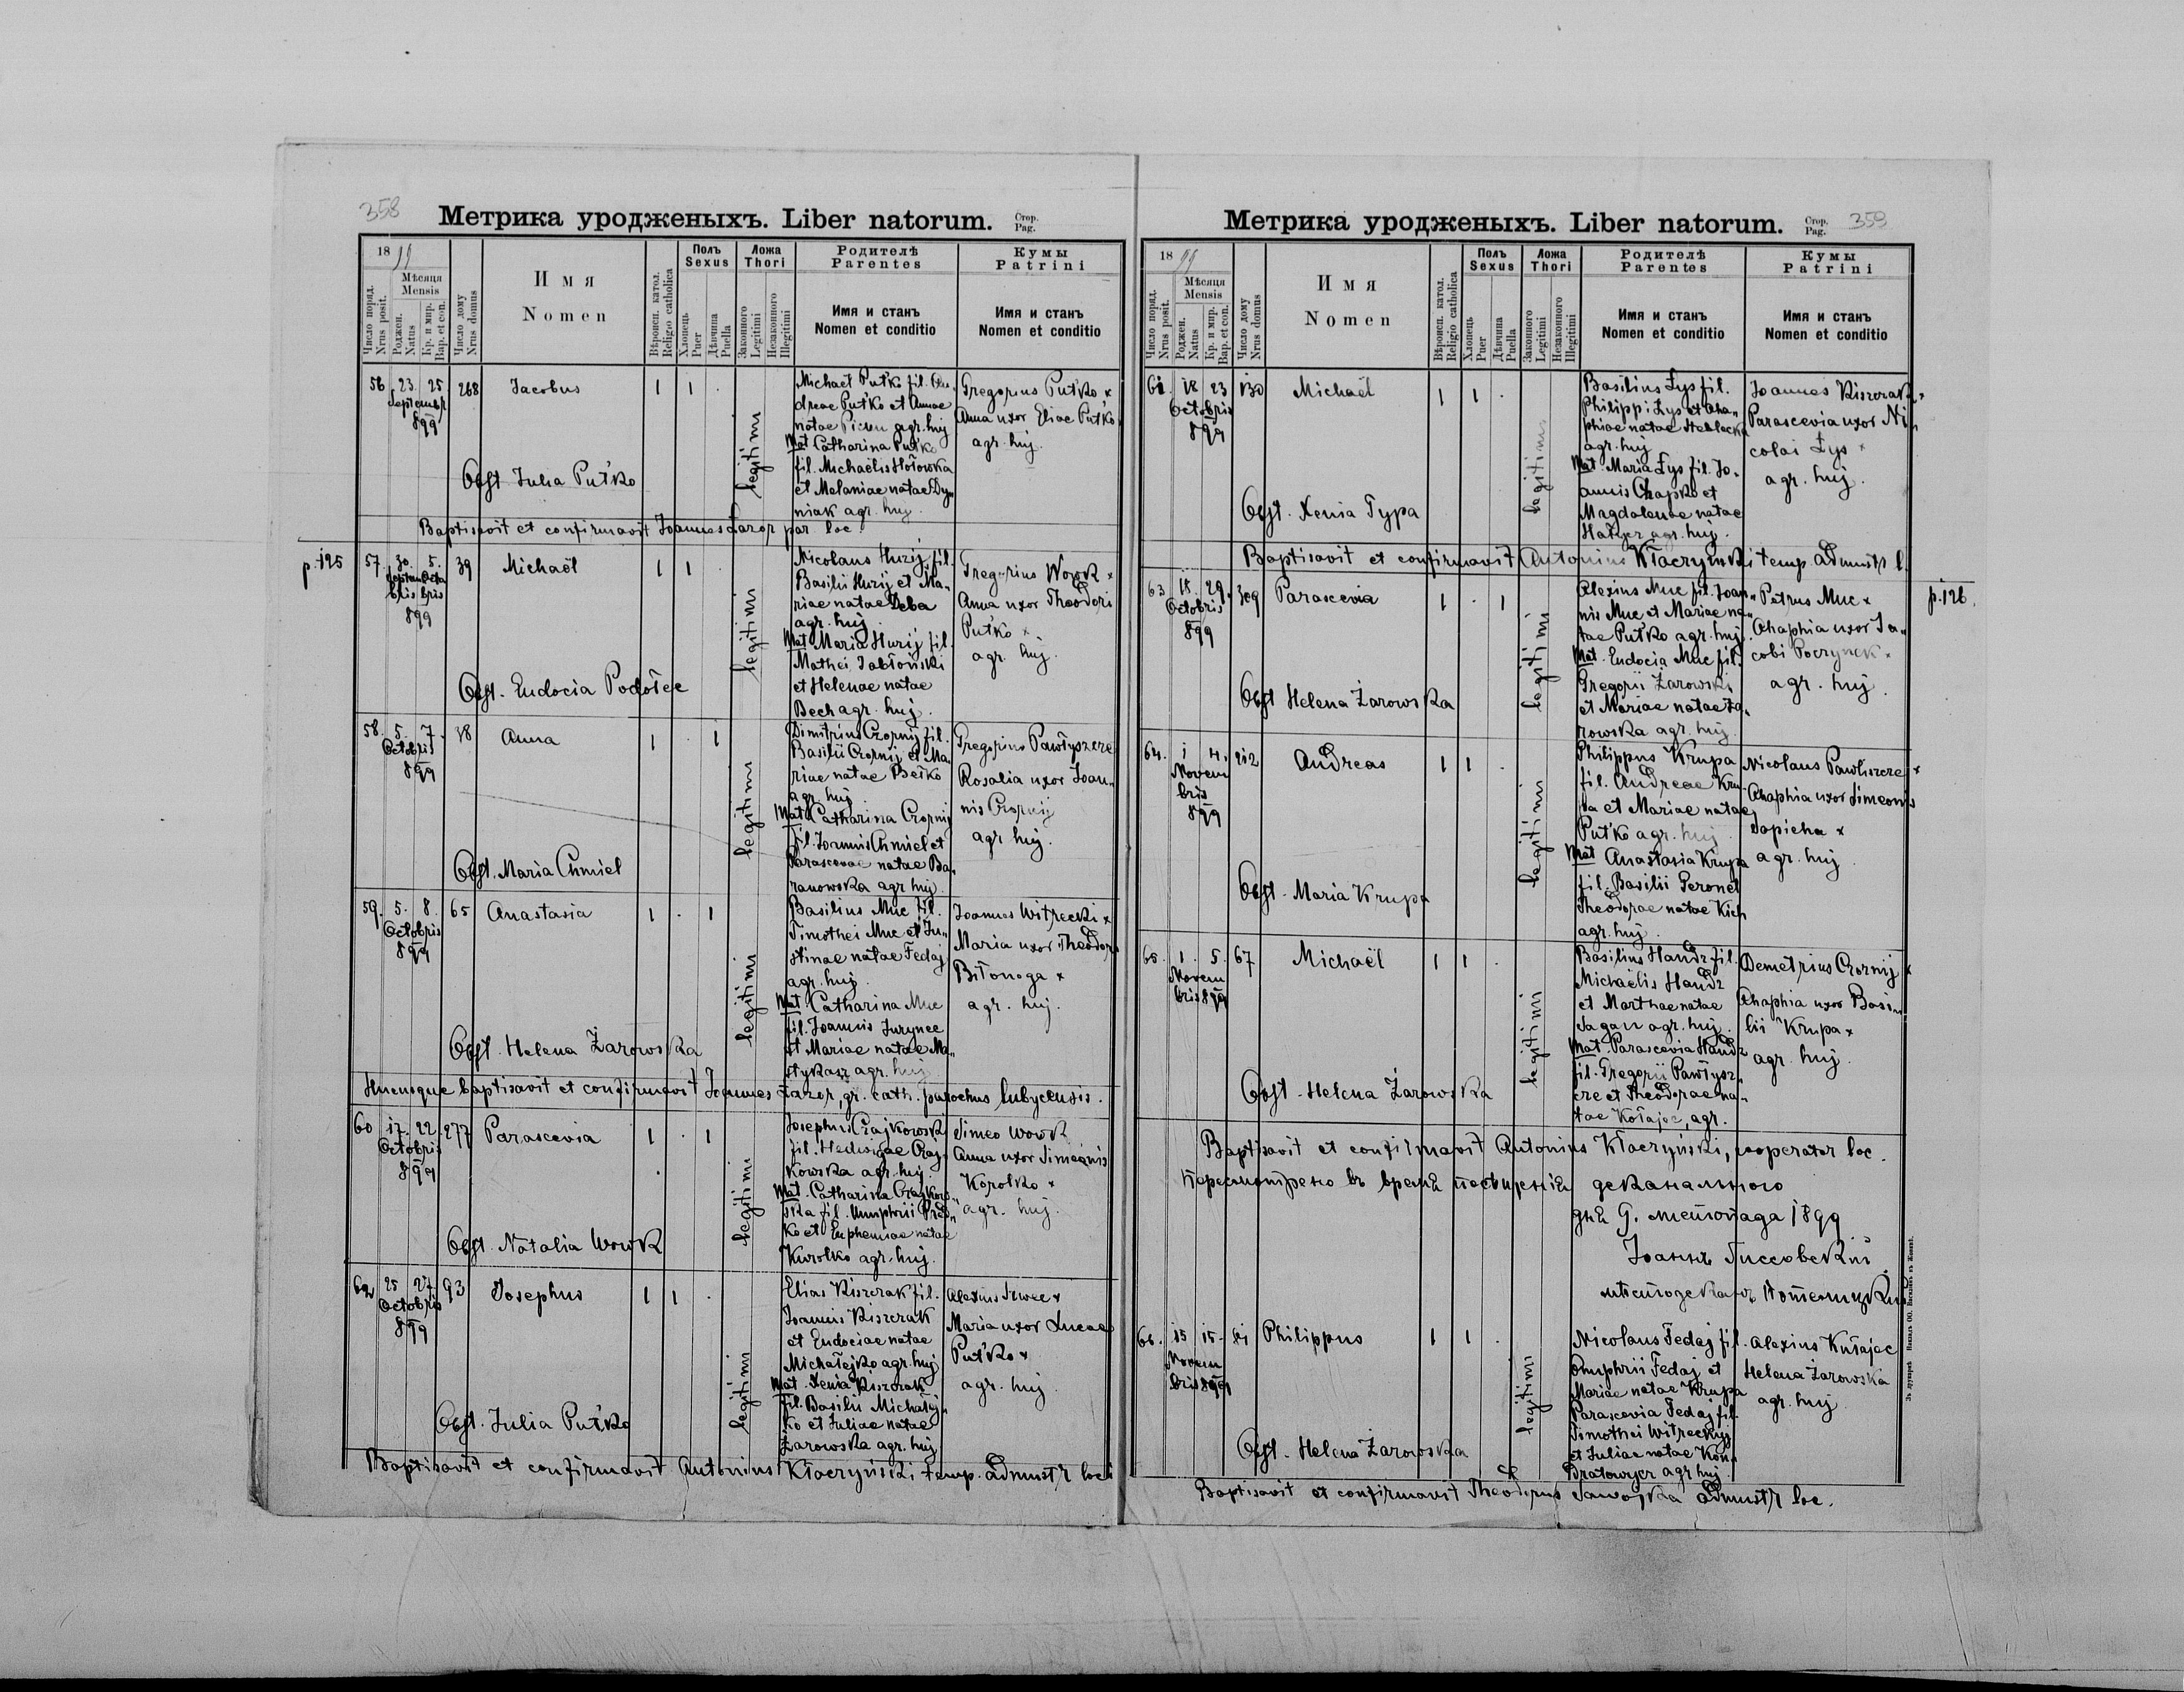 358
Метрика уродженыхъ. Liber natorum.
Стор.
Pag.
1899
Число поряд.
Nrus posit.
Мѣсяця
Mensis
Роджен.
Natus
Кр. и мир.
Bap. et con.
Число дому
Nrus domus
Имя
Nomen
Вѣроисп. катол.
Religio catholica
Полъ
Sexus
Хлопець
Puer
Дѣвчина
Puella
Ложа
Thori
Законного
Legitimi
Незаконного
Illegitimi
Родителѣ
Parentes
Имя и станъ
Nomen et conditio
Кумы
Patrini
Имя и станъ
Nomen et conditio
56 23. 25 Septembr 899 268 Jacobus 1 1 .
legitimi
Michaël Put'ko fil. An-
dreae Put'ko et Annae
natae agr. huj
Mat Catharina Put'ko
fil. Michaëlis Hołowka
et Melaniae natae Dy„
niak agr. huj.
Gregorius Put'ko x
Anna uxor Eliae Put'ko
agr. huj.
Obst Julia Put'ko
Baptisavit et confirmavit Joannes Łazor par. loc.
p. 125
57 30. 5. Septembris Octobris 899 39 Michaël 1 1 .
legitimi
Nicolaus Hurij fil.
Basilii Hurij et Ma„
riae natae Deba
agr. huj.
Mat Maria Hurij fil.
Mathei Jabłoński
et Helenae natae
Bech agr. huj.
Gregorius Wowk x
Anna uxor Theodori
Put'ko x
agr. huj.
Obst. Eudocia Podołec
58. 5. 7. Octobris 899 38 Anna 1 . 1
legitimi
Dimitrius Czornij fil.
Basilii Czornij et Ma„
riae natae Betko
agr. huj.
Mat Catharina Czornij
fil. Joannis Chmiel et
Parascevae natae Ba„
ranowska agr huj.
Gregorius Pawłyszcze
Rosalia uxor Joan„
nis Czornij
agr huj.
Obst. Maria Chmiel
59. 5. 8. Octobris 899 65 Anastasia 1 . 1
legitimi
Basilius Muc fil.
Timothei Muc et Ju„
stinae natae Fedaj
agr. huj.
Mat. Catharina Muc
fil. Joannis Jurynec
et Mariae natae Ma„
stykasz agr. huj
Joannes Witrecki x
Maria uxor Theodori
Biłonoga x
agr. huj.
Obst. Helena Żarowska
Hucusque baptisavit et confirmavit Joannes Łazor, gr. cath. parochus lubycensis.
60 17. 22. Octobris 899 277 Parascevia 1 . 1
legitimi
Josephus Czajkowsk
fil. Hedvigae Czaj„
kowska agr. huj.
Mat. Catharina Czajkow„
ska fil. Onuphrii
ko et Euphemiae natae
Kurolko agr. huj.
Simeo Wowk
Anna uxor Simeonis
Korolko x
agr. huj.
Obst. Natalia Wowk
62 25 27. Octobris 899 93 Josephus 1 1 .
legitimi
Elias Kiszczak fil.
Joannis Kiszczak
et Eudociae natae
Michałejko agr. huj
Mat. Xenia Kiszczak
fil. Basilii Michałej„
ko et Juliae natae
Żarowska agr. huj
Alexius x
Maria uxor Lucae
Put'ko x
agr. huj.
Obst. Julia Put'ko
Baptisavit et confirmavit Antonius Kłaczyński temp. admnstr loci
359
Метрика уродженыхъ. Liber natorum.
Стор.
Pag.
1899
Число поряд.
Nrus posit.
Мѣсяця
Mensis
Роджен.
Natus
Кр. и мир.
Bap. et con.
Число дому
Nrus domus
Имя
Nomen
Вѣроисп. катол.
Religio catholica
Полъ
Sexus
Хлопець
Puer
Дѣвчина
Puella
Ложа
Thori
Законного
Legitimi
Незаконного
Illegitimi
Родителѣ
Parentes
Имя и станъ
Nomen et conditio
Кумы
Patrini
Имя и станъ
Nomen et conditio
61. 18 23 Octobris 899 130 Michaël 1 1 .
legitimi
Basilius Łys fil.
Philippi Łys et Aha„
phiae natae
agr. huj
Mat. Maria Łys fil. Jo„
annis Chapko et
Magdalenae natae
agr. huj.
Joannes Kiszczak x
Parascevia uxor Ni„
colai Łys x
agr. huj.
Obst. Xenia Typa
Baptisavit et confirmavit Antonius Kłaczyński temp. admnstr l.
63 18. 29. Octobris 899 309 Parascevia 1 . 1
legitimi
p. 126.
Alexius Muc fil. Joan„
nis Muc et Mariae na„
tae Put'ko agr. huj.
Mat. Eudocia Muc fil.
Gregorii Żarowski
et Mariae natae Ża„
rowska agr. huj.
Petrus Muc x
Ahaphia uxor Ja„
cobi Poczynek x
agr. huj.
Obst Helena Żarowska
64. 1 4. Novembris 899 212 Andreas 1 1 .
legitimi
Philippus Krupa
fil. Andreae Kru-
pa et Mariae natae
Put'ko agr. huj
Mat Anastasia Krupa
fil. Basilii Geronet
Theodorae natae Kich
agr. huj.
Nicolaus Pawliszcze x
Ahaphia uxor Simeonis
Sapieha x
agr. huj.
Obst. Maria Krupa
65. 1. 5. Novembris 899 67 Michaël 1 1 .
legitimi
Basilius Handz fil.
Michaëlis Handz
et Marthae natae
Sagan agr. huj.
Mat. Parascevia Handz
fil. Gregorii Pawłysz„
cze et Theodorae na„
tae Kołajec, agr.
Demetrius Czornij x
Ahaphia uxor Basi„
lii Krupa x
agr. huj.
Obst. Helena Żarowska
Baptisavit et confirmavit Antonius Kłaczyński, cooperator loc.
Пересмотрено въ время посѣщенія деканального
дня 9. листопада 1899
Іоаннъ
66. 15 15. Novembris 899 Philippus 1 1 .
legitimi
Nicolaus Fedaj fil.
Onuphrii Fedaj et
Mariae natae Krupa
Parascevia Fedaj fil.
Timothei Witreckyj
et Juliae natae Kon„
dratowycz agr huj
Alexius Kułajec
Helena Żarowska
agr. huj.
Obst. Helena Żarowska
Baptisavit et confirmavit Theodorus Sawojka admnstr loc.